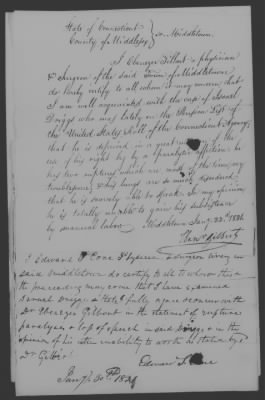 State of Connecticut
County of Middlesex } ss. Middletown
I Ebenezer Gilbert a physician
& Surgeon of the said Town of Middletown
do hereby certify to all whom it may concern that
I am well acquainted with the case of Israel
Driggs who was lately on the Pension List of
the United States Roll of the Connecticut Agency,
that he is deprived in a great the
use of his right by a Paralytic affliction he
has two ruptures which are most of the time very
troublesome, & his lungs are so much
that he is scarcely able to speak. In my opinion
he is totally unable to gain his subsistence
by manual labor. Middletown Jany 22d
Eben Gilbert
I Edward S Cone Physician & Surgeon living in
said Middletown do certify to all to whom these
the preceeding may come that I have examined
Israel Driggs & that I fully agree & concur with
Dr Ebenezer Gilbert in the statement of ruptures
paralysis & loss of speech in said Driggs & in the
opinion of his utter inability to work as stated by
Dr Gilbert
Edward S Cone
Jany 30th